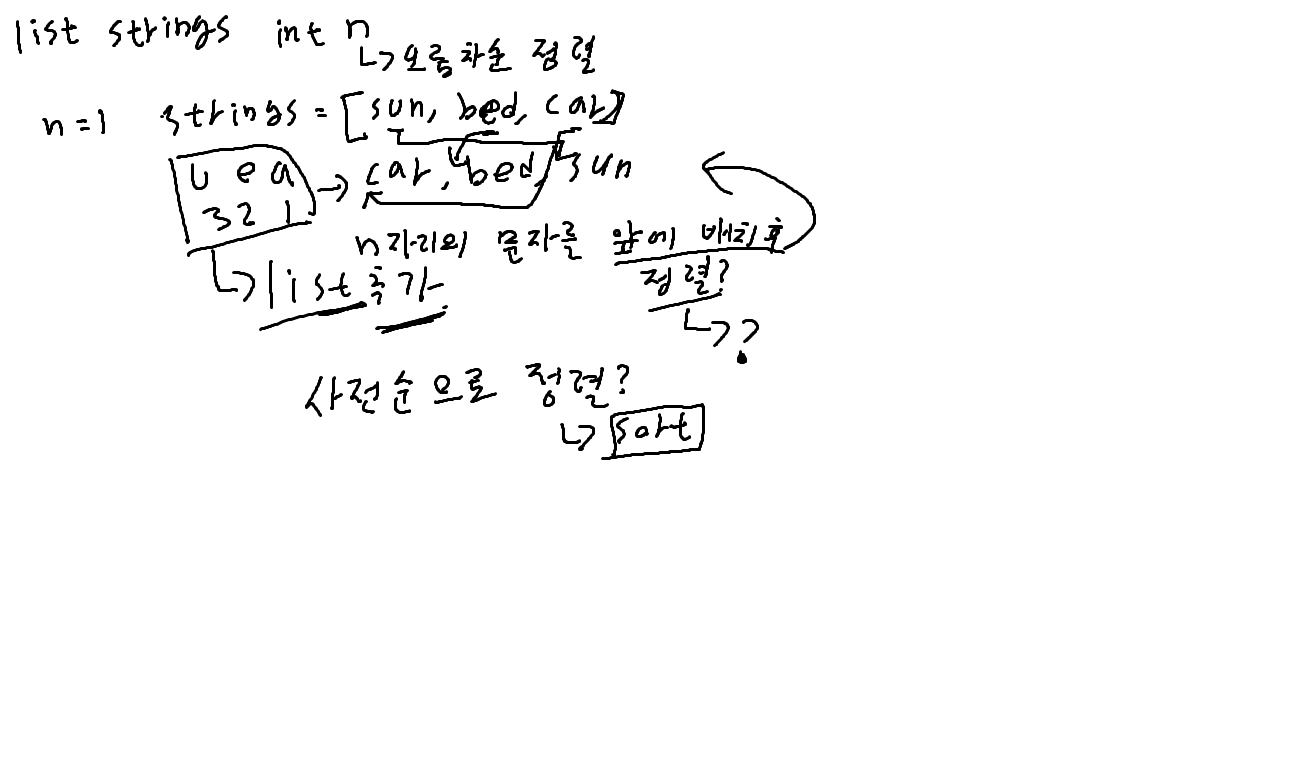 list strings int n
↳오름차순 정렬
n=1 strings = [sun, bed, car]
u e a → car, bed, sun
3 2 1
n자리의 문자를 앞에 배치후
↳list 추가 정렬?
↳?
사전순으로 정렬?
↳sort